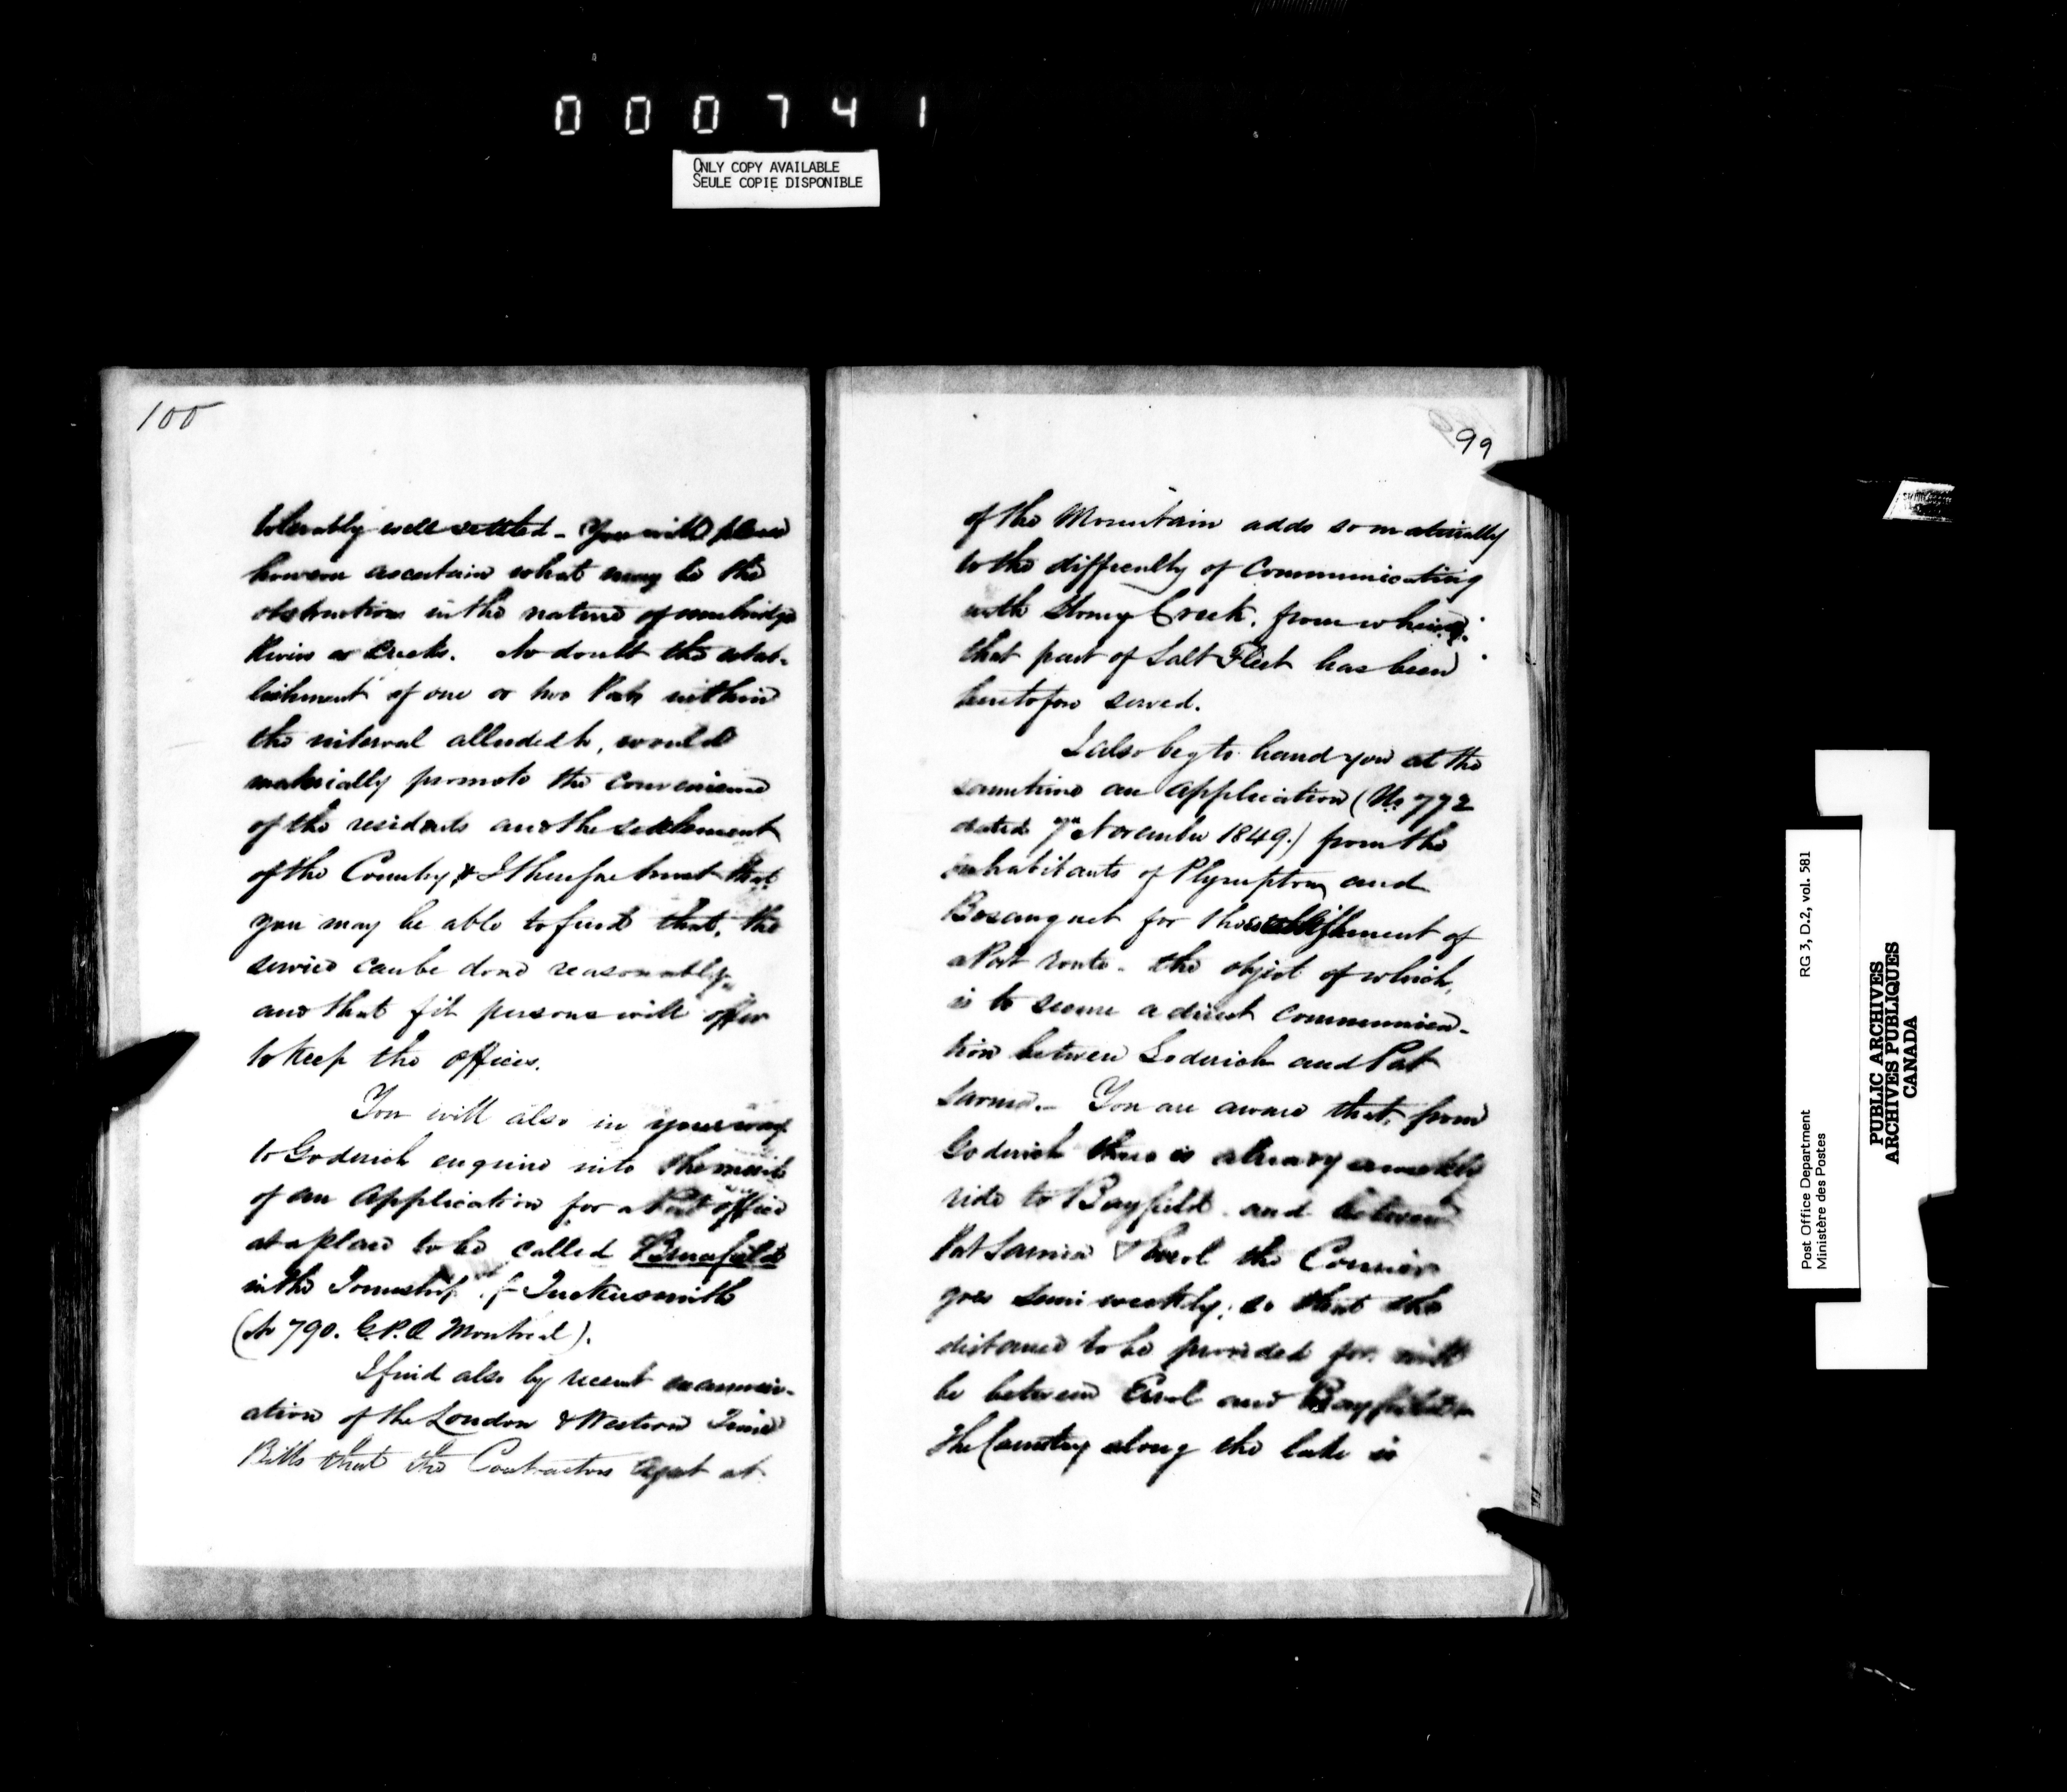 000741
ONLY COPY AVAILABLE
SEULE COPIE DISPONIBLE
100
tolerably well settled - You will please
however ascertain what may be the
obstructions in the nature of unbridged
Rivers or Creeks. No doubt the estab-
lishment of one or two Posts within
the interval alluded to, would
materially promote the convenience
of the residents and the settlement
of the Country & I therefore trust that
you may be able to find that, the
service can be done reasonably
and that fit persons will offer
to keep the offices.
You will also in your way
to Goderich enquire into the merits
of an Application for a Post office
at a place to be called Brucefield
in the Township of Tuckersmith
(No 790. G.P.O Montreal).
I find also by recent examin-
ation of the London & Western Time
Bills that the Contractors Agent at
99
of the Mountain adds so materially
to the difficulty of Communicating
with Stoney Creek, from whence
that part of Salt Fleet has been
heretofore served.
I also beg to hand you at the
sametime an Application (No 772
dated 7th November 1849.) from the
inhabitants of Plympton and
Bosanquet for the establishment of
a Post route - the object of which,
is to secure a direct communica-
tion between Goderich and Port
Sarnia. - You are aware that, from
Goderich there is already a weekly
ride to Bayfield and between
Port Sarnia & Errol the Courier
goes semi weekly; so that the
distance to be provided for will
be between Errol and Bayfield
The Country along the lake is
Post Office Department
Ministère des Postes
RG 3, D.2, vol. 581
PUBLIC ARCHIVES
ARCHIVES PUBLIQUES
CANADA